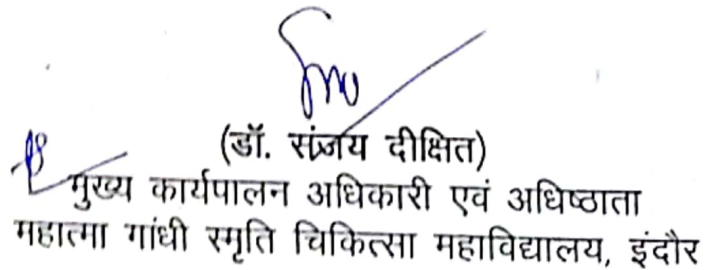 (डॉ. संजय दीक्षित)
मुख्य कार्यपालन अधिकारी एवं अधिष्ठाता
महात्मा गांधी स्मृति चिकित्सा महाविद्यालय, इंदौर